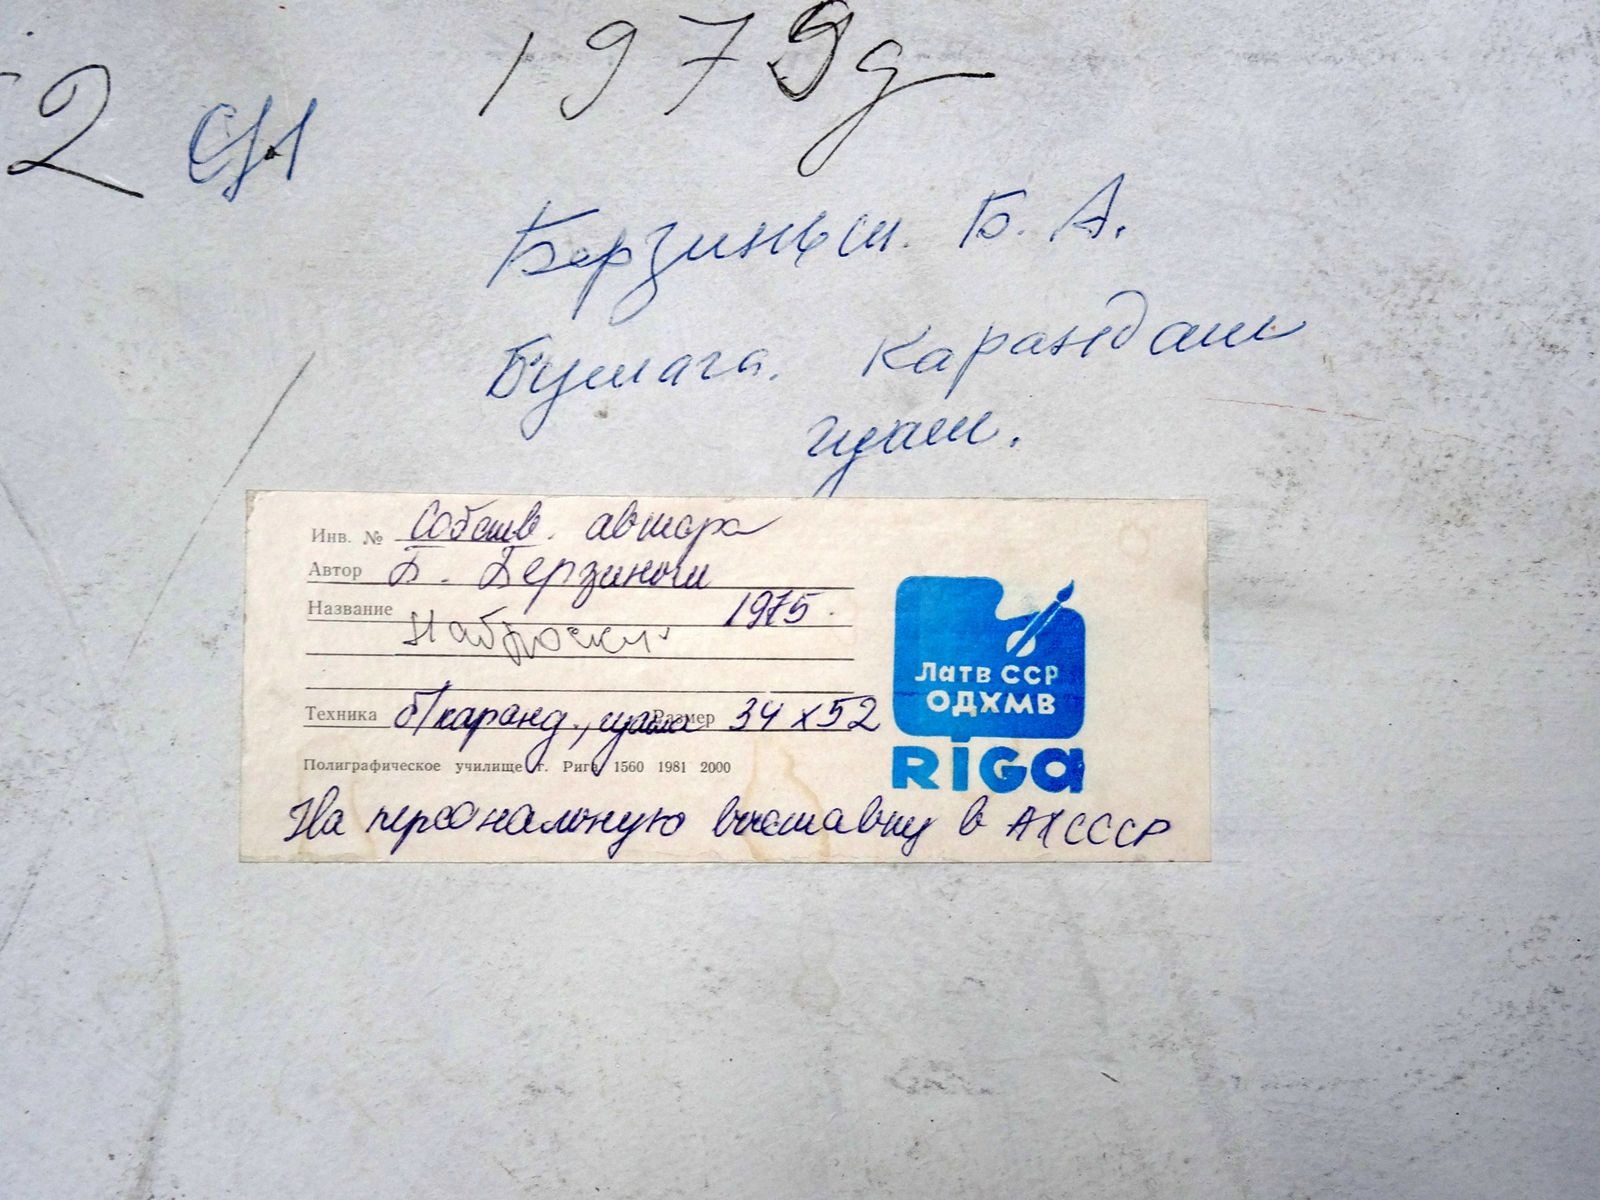 1979д
2 СП
Берзиньш. Б. А.
Бумага. Карандаш
гуаш.
Инв. № Собств. автора
Автор Б. Берзиньш
Название 1975.
Наброски
Техника б/каранд., гуашь Размер 34 х 52
Полиграфическое училище г. Рига 1560 1981 2000
На персональную выставку в АХ СССР
Латв ССР
ОДХМВ
RIGA